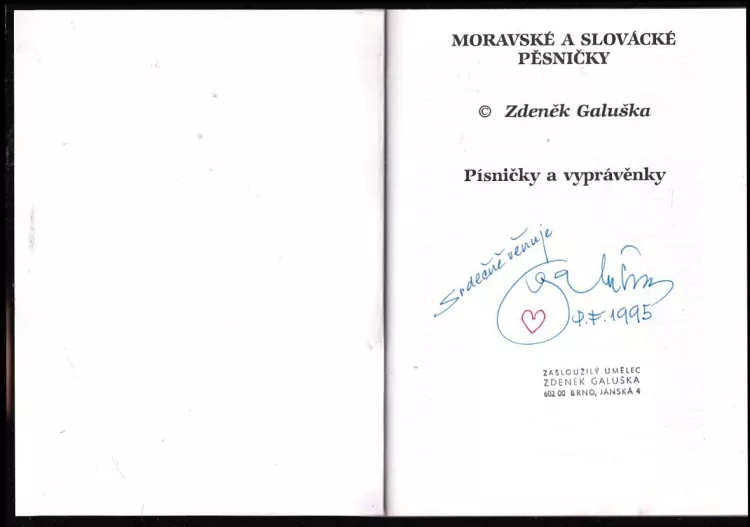 MORAVSKÉ A SLOVÁCKÉ
PĚSNIČKY
© Zdeněk Galuška
Písničky a vyprávěnky
Srdečně věnuje
Galuška
P.F. 1995
ZASLOUŽILÝ UMĚLEC
ZDENĚK GALUŠKA
602 00 BRNO, JÁNSKÁ 4